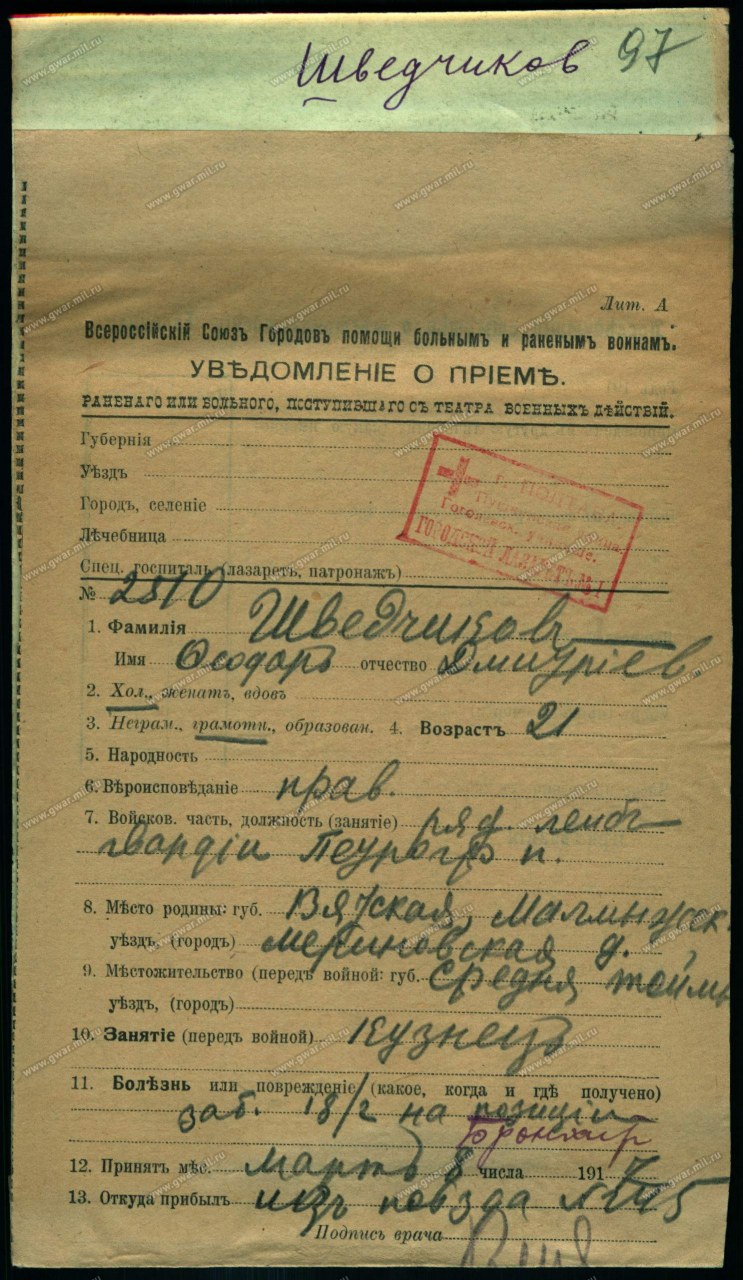 Шведчиков 97
Лит. А
Всероссійскій Союзъ Городовъ помощи больнымъ и раненымъ воинамъ.
УВѢДОМЛЕНІЕ О ПРІЕМѢ.
РАНЕНАГО ИЛИ БОЛЬНОГО, ПОСТУПИВШАГО СЪ ТЕАТРА ВОЕННЫХЪ ДѢЙСТВІЙ.
Губернія
Уѣздъ
Городъ, селеніе
Лѣчебница
Спец. госпиталь (лазаретъ, патронажъ)
ГОРОДСКОЙ ЛАЗАРЕТЪ № 1
№ 2510
1. Фамилія Шведчиковъ
Имя Ѳеодоръ отчество Дмитріев.
2. Хол., женатъ, вдовъ
3. Неграм., грамотн., образован. 4. Возрастъ 21
5. Народность
6. Вѣроисповѣданіе прав.
7. Войсков. часть, должность (занятіе) ряд. лейбъ
гвардіи Петрогр п.
8. Мѣсто родины: губ. Вятская, Малмыжск.
уѣздъ, (городъ) д.
9. Мѣстожительство (передъ войной: губ. Средня тойма
уѣздъ, (городъ)
10. Занятіе (передъ войной) Кузнецъ
11. Болѣзнь или поврежденіе (какое, когда и гдѣ получено)
заб. 18/2 на позиціи
Бронхит
12. Принятъ мѣс. Мартъ 8 числа 1917
13. Откуда прибылъ изъ поѣзда №
Подпись врача
www.gwar.mil.ru